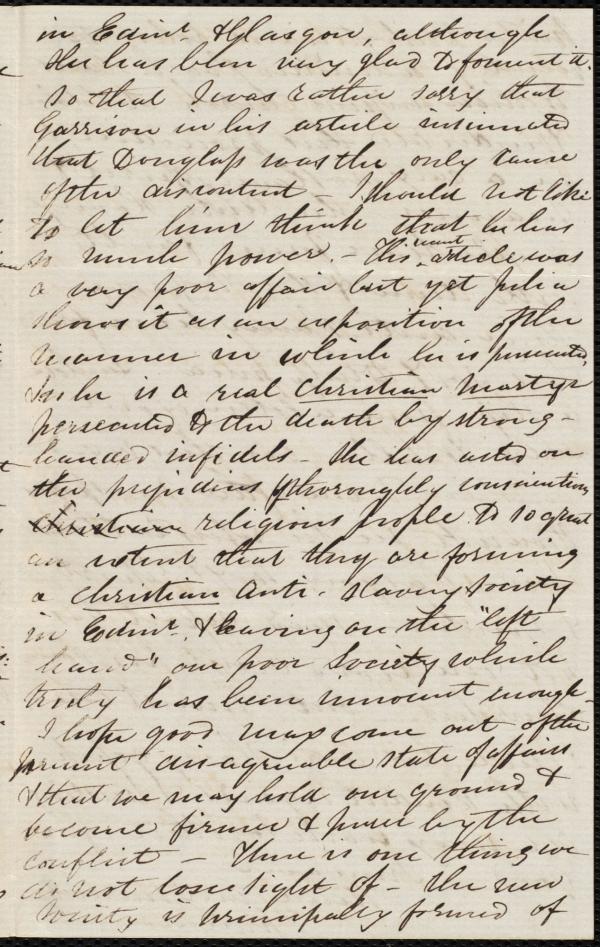 in Edinr. & Glasgow, although
she has been very glad to foment it.
so that I was rather sorry that
Garrison in his article insinuated
that Douglass was the only cause
of the discontent - I should not like
to let him think that he has
so much power. - This recent article was
a very poor affair but yet Julia
shows it as an exposition of the
manner in which he is persecuted,
he is a real Christian Martyr
persecuted to the death by strong-
handed infidels - She has acted on
the prejudices of thoroughly conscientious
Christian religious people to so great
an extent that they are forming
a Christian Anti-Slavery Society
in Edinr. & leaving on the "left
hand" our poor Society which
truly has been innocent enough -
I hope good may come out of the
present disagreeable state of affairs
& that we may hold our ground &
become firmer & purer by the
conflict - There is one thing we
do not lose sight of - the new
Society is principally formed of